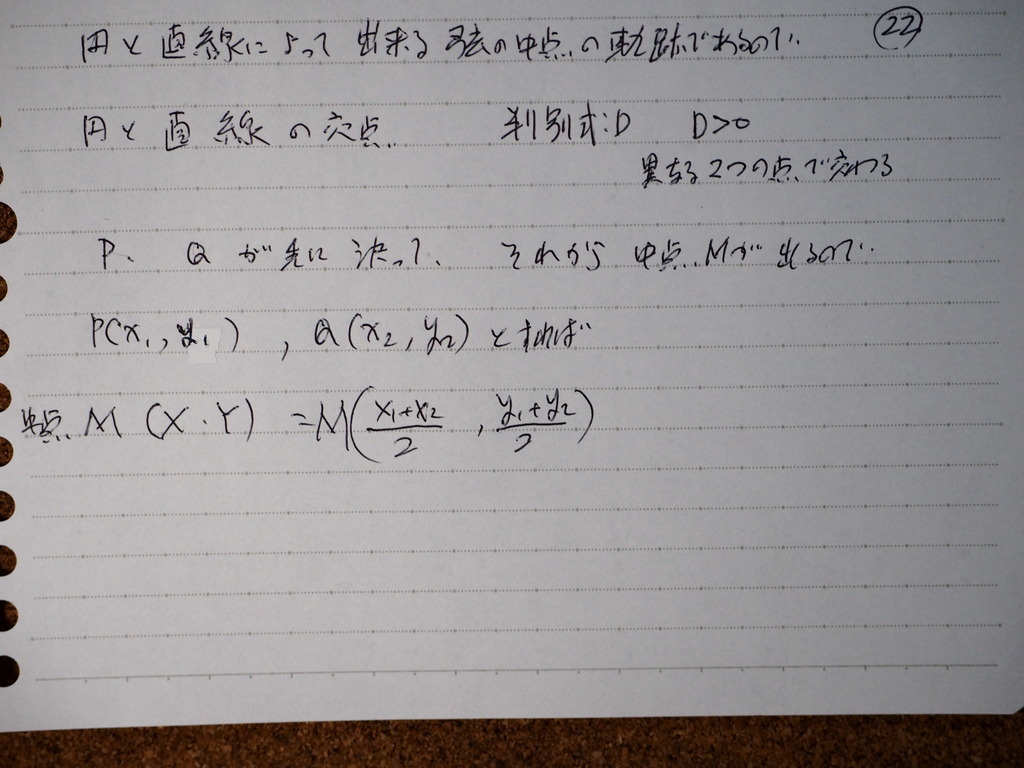 円と直線によって出来る弦の中点の軌跡であるので. 22
円と直線の交点 判別式:D D>0
異なる2つの点で交わる
P. Q が先に決って、それから 中点Mが出るので.
P(x₁, y₁) , Q(x₂, y₂) とすれば
中点 M (X・Y) = M((x₁+x₂)/2 , (y₁+y₂)/2)